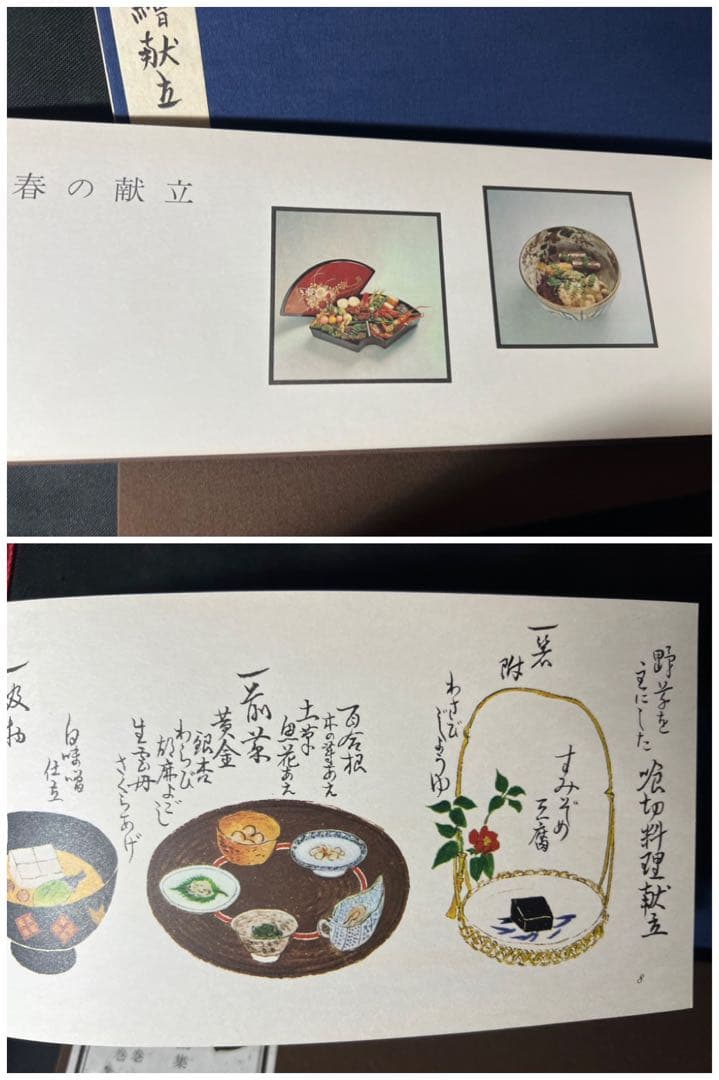 繪献立
春の献立
野草を
主にした
喰切料理献立
一箸
附
すみぞめ
豆腐
わさび
じょうゆ
一前菜
百合根
木の芽あえ
土筆
魚花あえ
黄金
銀杏
わらび
胡麻よごし
生雲丹
さくらあげ
一吸物
白味噌
仕立
8
集
巻
巻